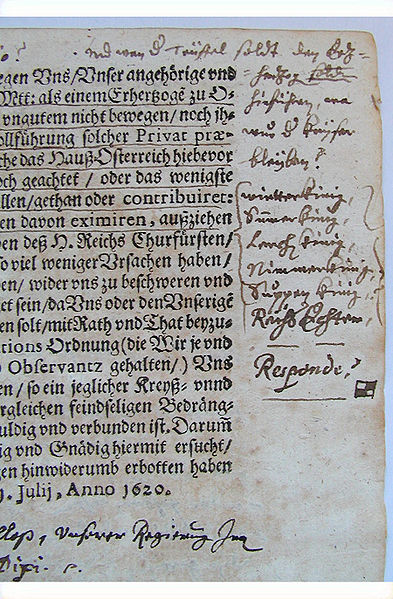 Und wan d Teüffel holdt den Ertz-
hertzog
hinführen, wa
würd d Keyser
bleiben?
egen Vns/Vnser angehörige vnd
Mtt: als einem Erhertzogē zu O-
vngutem nicht bewegen/noch ih-
ollführung solcher Privat præ-
che das Hauß-Osterreich hiebevor
och geachtet / oder das wenigste
llen/gethan oder contribuiret:
en davon eximiren, außziehen
en deß H. Reichs Churfürsten/
so viel weniger Vrsachen haben/
en/ wider vns zu beschweren vnd
et sein/da Vns oder den Vnserigē
en solt/mit Rath vnd That beyzu-
tions Ordnung (die Wir je vnd
Observantz gehalten/) Vns
en/ so ein jeglicher Kreyß- vnnd
ergleichen feindseligen Bedräng-
uldig vnd verbunden ist. Darum
ig vnd Gnädig hiermit ersucht/
gen hinwiderumb erbotten haben
j. Julij, Anno 1620.
winterkönig,
Sumerkönig,
Lerch könig,
Nimmerkönig,
Suppen könig,
Reichs Echter,
Responde?
Unserer Regierung Im
Dixi.